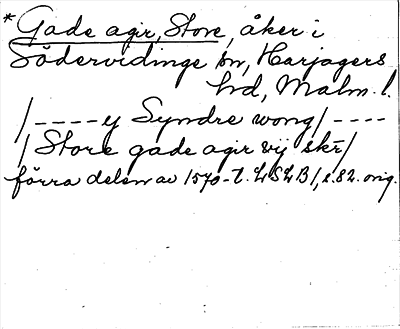 * Gade agir, Store, åker i
Södervidinge sn, Harjagers
hd, Malm. l.
/----y Syndre wong/----
/Store gade agir vij skr/
förra delen av 1570-t. LSLB1, s.82. orig.